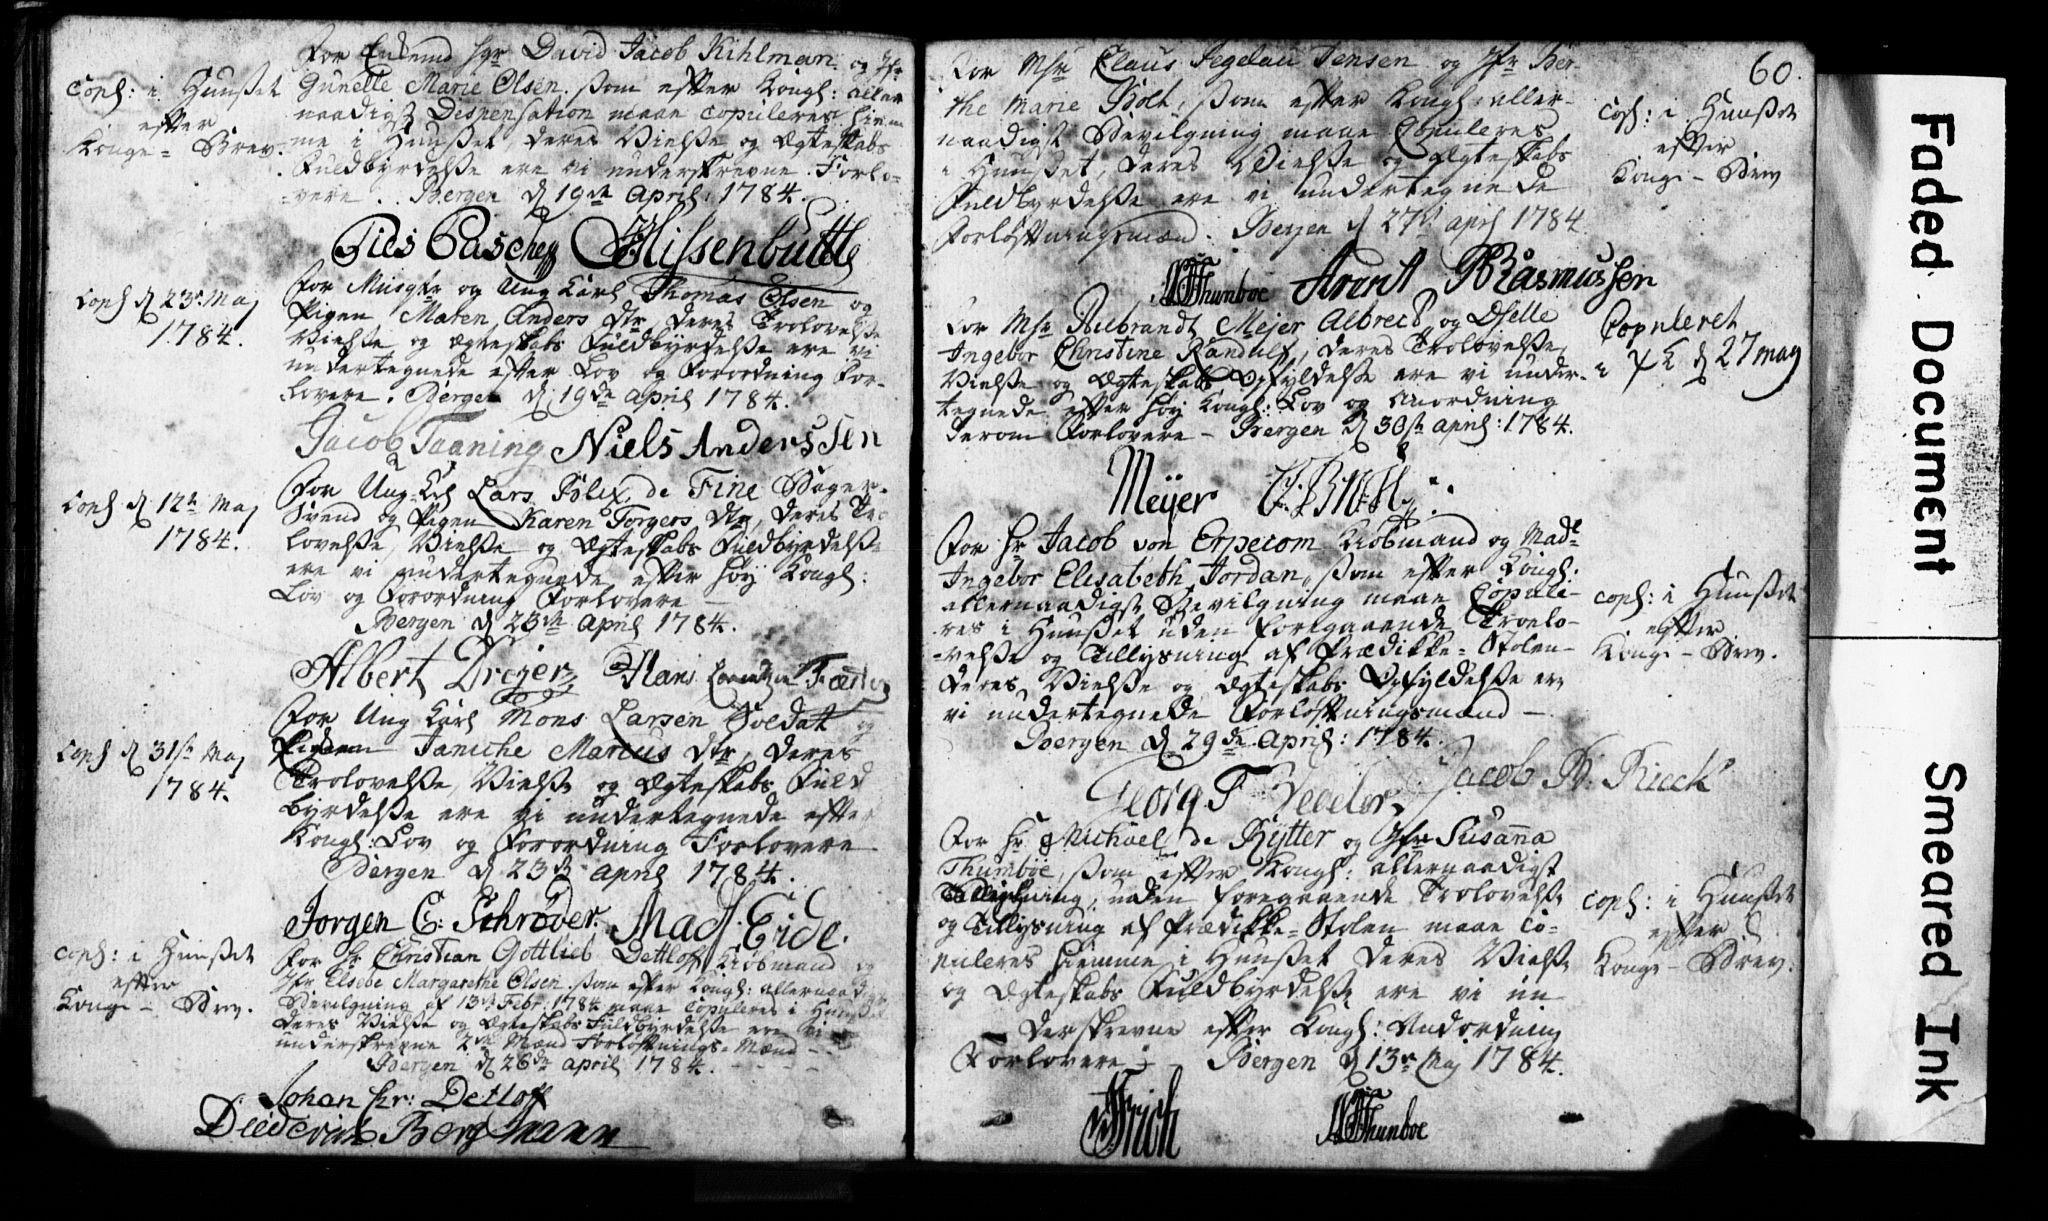 For Enkemd Sgr David Jacob Kihlman og Jfr
Gunelle Marie Olsen som efter Kongl: aller
naadigst Dispensation maae copuleres hiem
me i Huusset, deres Vielsse og Ægteskabs
Fuldbyrdelsse ere vi underskrevne Forlo-
vere .. Bergen d 19de April: 1784.
Coph: i Huusset
efter
Konge- Brev.
Hissenbuttel
For Musqtr og Ung Karl Thomas Olsen og
Pigen Maren Anders dtr, deres Trolovelsse
Vielsse og Ægteskabs Fuldbyrdelsse ere vi
undertegnede efter Lov og Forordning For-
lovere. Bergen d 19de April 1784.
Coph d 23de Maj
1784.
Jacob Taaning Niels Anderssen
For Ung Krl Lars de Fine Bager-
Svend og Pigen Karen Torgers dtr, deres Tro
lovelsse, Vielsse og Ægteskabs Fuldbyrdelsse
ere vi undertegnede efter høy Kongl:
Lov og Forordning Forlovere -
Bergen d 23de April 1784.
Coph d 12te Maj
1784.
Albert Dreyer Hans
For Ung Karl Mons Larsen Soldat og
Pigen Taniche Marcus dtr, deres
Trolovelsse, Vielsse og Ægteskabs Fuld
byrdelsse ere vi undertegnede efter
Kongl: Lov og Forordning Forlovere
Bergen d 23de April 1784.
Coph d 31ste Maj
1784.
Jorgen C: Schrøder. Mads Eide.
For Hr Christian Gottlieb Dettloff Kiøbmand og
Jfr Elsebe Margarethe Olsen som efter Kongl: allernaadigst
Bevilgning af 13de Febr: 1784 maae Copuleres i Huusset
deres Vielsse og Ægteskabs Fuldbyrdelsse ere vi
underskrevne 2de Mænd Forløftnings-Mænd -
Bergen d 26de April 1784.
Coph: i Huusset
efter
Konge - Brev.
Johan Chr: Detloff
Diederich Bergmann
60.
For Msr Claus Tensen og Jfr Ber-
the Marie Holt, som efter Kongl: aller-
naadigst Bevilgning maae Copuleres
i Huusset, deres Vielsse og Ægteskabs
Fuldbyrdelsse ere vi undertegnede
Forløftningsmænd. Bergen d 27de April 1784
Coph: i Huusset
efter
Konge - Brev
Thunboe Arent Rasmussen
For Msr Rubrandt Mejer Albrect og Dslle
Ingebor Christine Randulf, deres Trolovelsse,
Vielsse og Ægteskabs Opfyldelsse ere vi under-
tegnede efter høy Kongl: Lov og Anordning
derom Forlovere - Bergen d 30te April: 1784.
Copuleret
d 27 may
Meyer
For Hr Jacob von Erpecom Kiøbmand og Madle
Ingebor Elisabeth Jordan, som efter Kongl:
allernaadigst Bevilgning maae Copule-
res i Huusset uden foregaaende Troelo-
-velsse og Tillysning af Prædikke-Stolen-
deres Vielsse og Ægteskabs Opfyldelsse ere
vi undertegnede Forløftningsmænd -
Bergen d 29de April: 1784.
Coph: i Huusset
efter
Konge - Brev.
Georg F Vedeler Jacob Rieck
For Hr Michael de Rytter og Jfr Susanna
Thumboe, som efter Kongl: allernaadigst
Bevilgning, uden foregaaende Trolovelsse
og Tillysning af Prædikke-Stolen maae Co-
puleres hiemme i Huusset deres Vielsse
og Ægteskabs Fuldbyrdelsse ere vi un
derskrevne efter Kongl: Andordning
Forlovere; Bergen d 13de Maj 1784.
Coph: i Huusset
efter
Konge - Brev.
Frich Thunboe
Faded Document
Smeared Ink